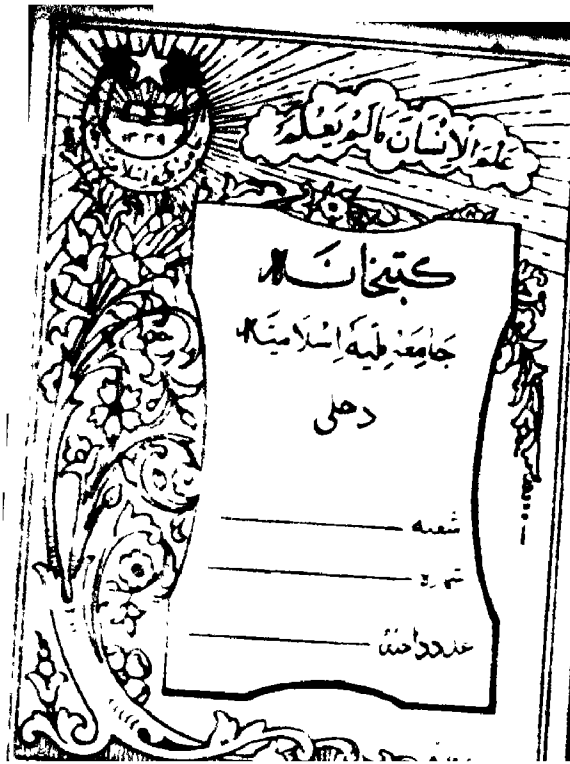 عَلَّمَ الْاِنْسَانَ مَالَمْ یَعْلَمْ
کتبخانہ
جَامِعَہ مِلّیَہ اِسْلَامِیَہ
دہلی
شعبہ
نمبر
عدد داخلہ